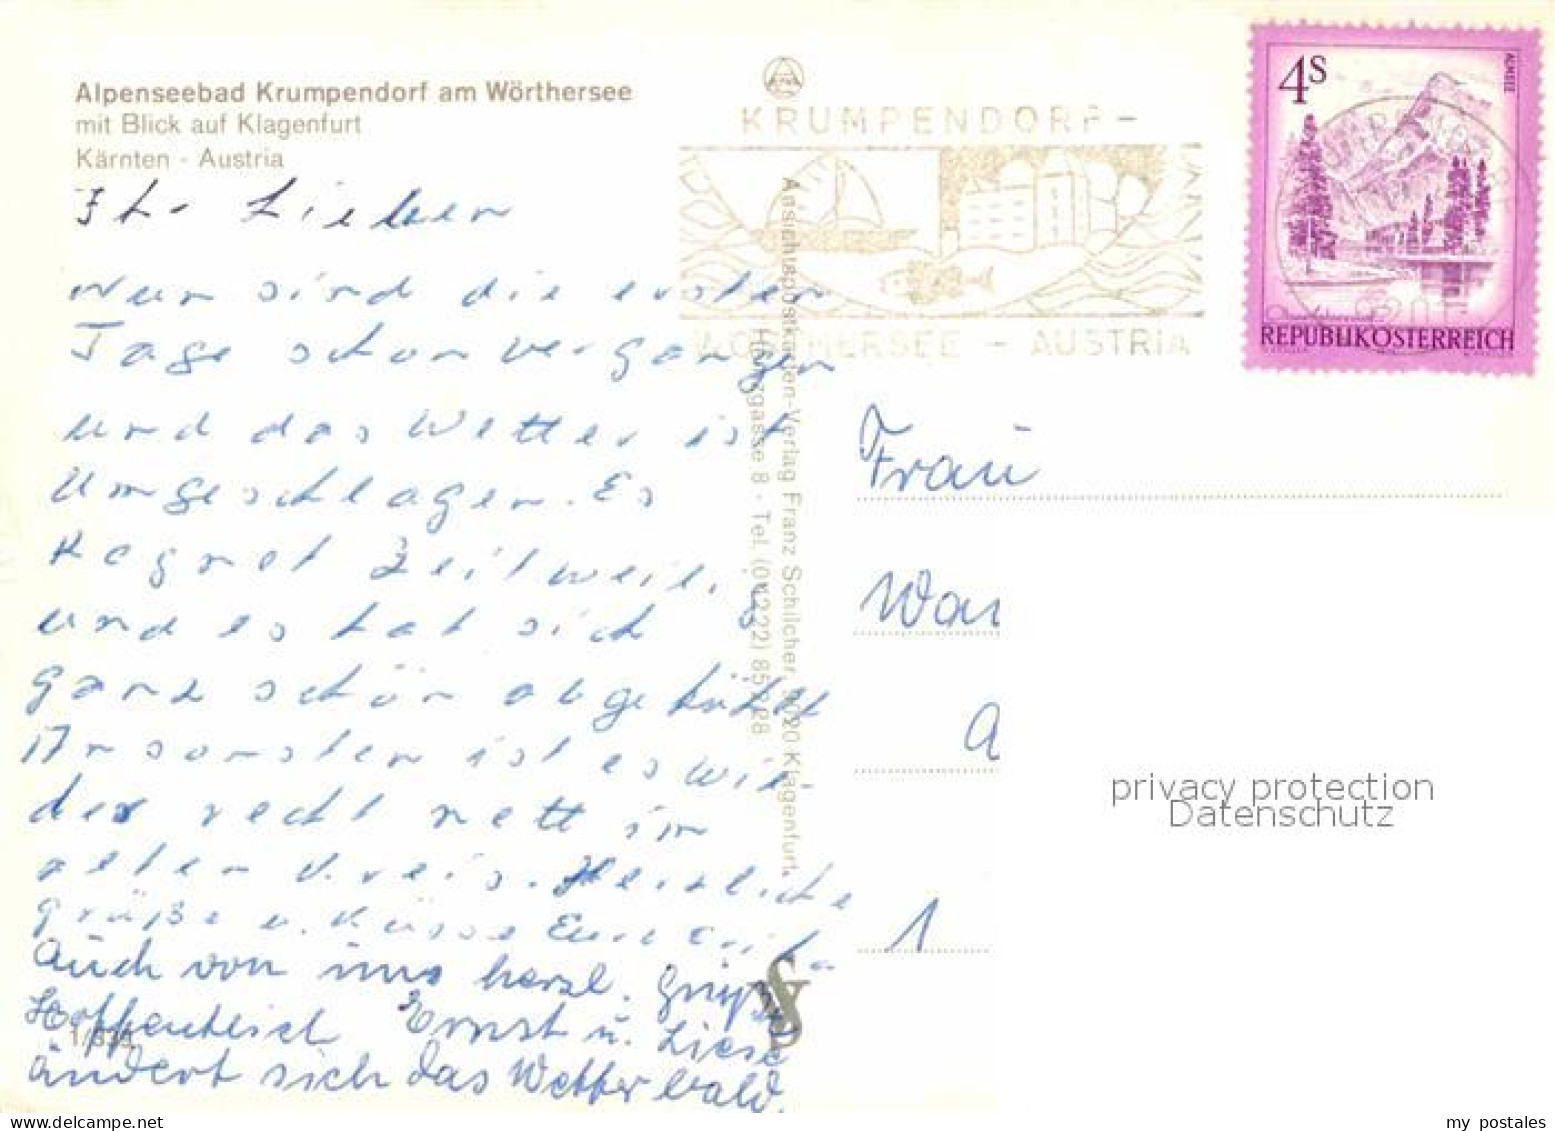 Alpenseebad Krumpendorf am Wörthersee
mit Blick auf Klagenfurt
Kärnten - Austria
KRUMPENDORF -
WÖRTHERSEE - AUSTRIA
4S
ALMSEE
REPUBLIK ÖSTERREICH
Ihr Lieben
Nun sind die ersten
Tage schon vergangen
und das Wetter ist
Umgeschlagen. Es
Regnet Zeitweil.
und es hat sich
ganz schön abgekühlt
Ansonsten ist es wie-
der recht nett im
alten Kreis. Herzliche
Grüße u. Küsse Eure
Auch von uns herzl. Grüße
Ernst u. Liese
Hoffentlich
ändert sich das Wetter bald.
1/339
Ansichtspostkarten-Verlag Franz Schilcher, 9020 Klagenfurt,
gasse 8 · Tel. (04222) 85 2 28
Frau
War
A
1
privacy protection
Datenschutz
my postales